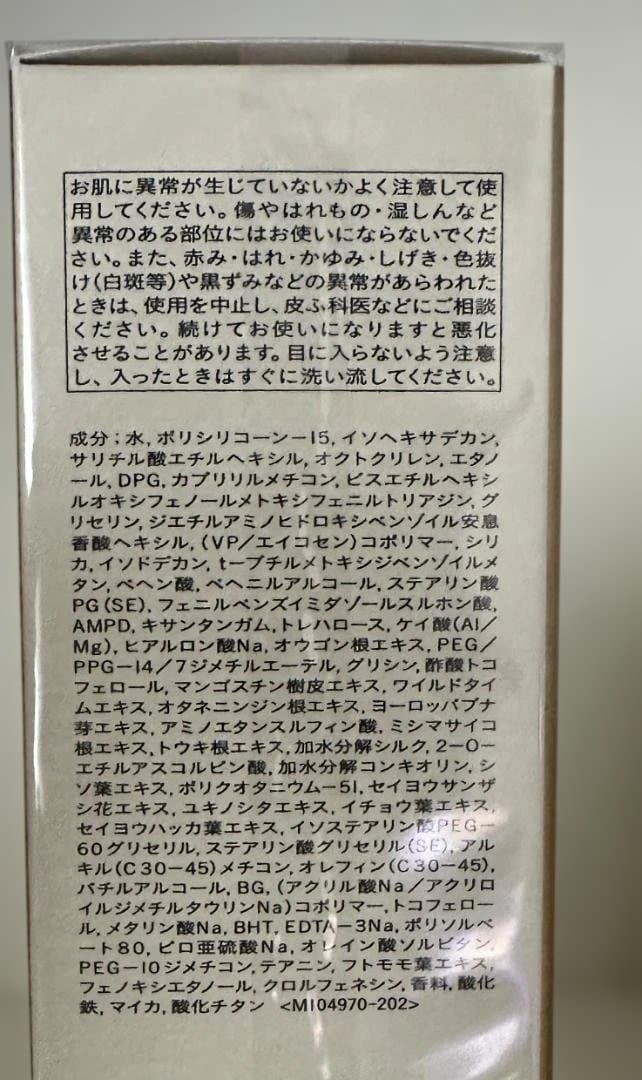 お肌に異常が生じていないかよく注意して使
用してください。傷やはれもの・湿しんなど
異常のある部位にはお使いにならないでくだ
さい。また、赤み・はれ・かゆみ・しげき・色抜
け(白斑等)や黒ずみなどの異常があらわれた
ときは、使用を中止し、皮ふ科医などにご相談
ください。続けてお使いになりますと悪化
させることがあります。目に入らないよう注意
し、入ったときはすぐに洗い流してください。
成分；水, ポリシリコーン−15, イソヘキサデカン,
サリチル酸エチルヘキシル, オクトクリレン, エタノ
ール, DPG, カプリリルメチコン, ビスエチルヘキシ
ルオキシフェノールメトキシフェニルトリアジン, グ
リセリン, ジエチルアミノヒドロキシベンゾイル安息
香酸ヘキシル, (VP／エイコセン)コポリマー, シリ
カ, イソドデカン, t−ブチルメトキシジベンゾイルメ
タン, ベヘン酸, ベヘニルアルコール, ステアリン酸
PG(SE), フェニルベンズイミダゾールスルホン酸,
AMPD, キサンタンガム, トレハロース, ケイ酸(Al／
Mg), ヒアルロン酸Na, オウゴン根エキス, PEG／
PPG−14／7ジメチルエーテル, グリシン, 酢酸トコ
フェロール, マンゴスチン樹皮エキス, ワイルドタイ
ムエキス, オタネニンジン根エキス, ヨーロッパブナ
芽エキス, アミノエタンスルフィン酸, ミシマサイコ
根エキス, トウキ根エキス, 加水分解シルク, 2−O−
エチルアスコルビン酸, 加水分解コンキオリン, シ
ソ葉エキス, ポリクオタニウム−51, セイヨウサンザ
シ花エキス, ユキノシタエキス, イチョウ葉エキス,
セイヨウハッカ葉エキス, イソステアリン酸PEG−
60グリセリル, ステアリン酸グリセリル(SE), アル
キル(C30−45)メチコン, オレフィン(C30−45),
バチルアルコール, BG, (アクリル酸Na／アクリロ
イルジメチルタウリンNa)コポリマー, トコフェロー
ル, メタリン酸Na, BHT, EDTA−3Na, ポリソルベ
ート80, ピロ亜硫酸Na, オレイン酸ソルビタン,
PEG−10ジメチコン, テアニン, フトモモ葉エキス,
フェノキシエタノール, クロルフェネシン, 香料, 酸化
鉄, マイカ, 酸化チタン <MI04970-202>